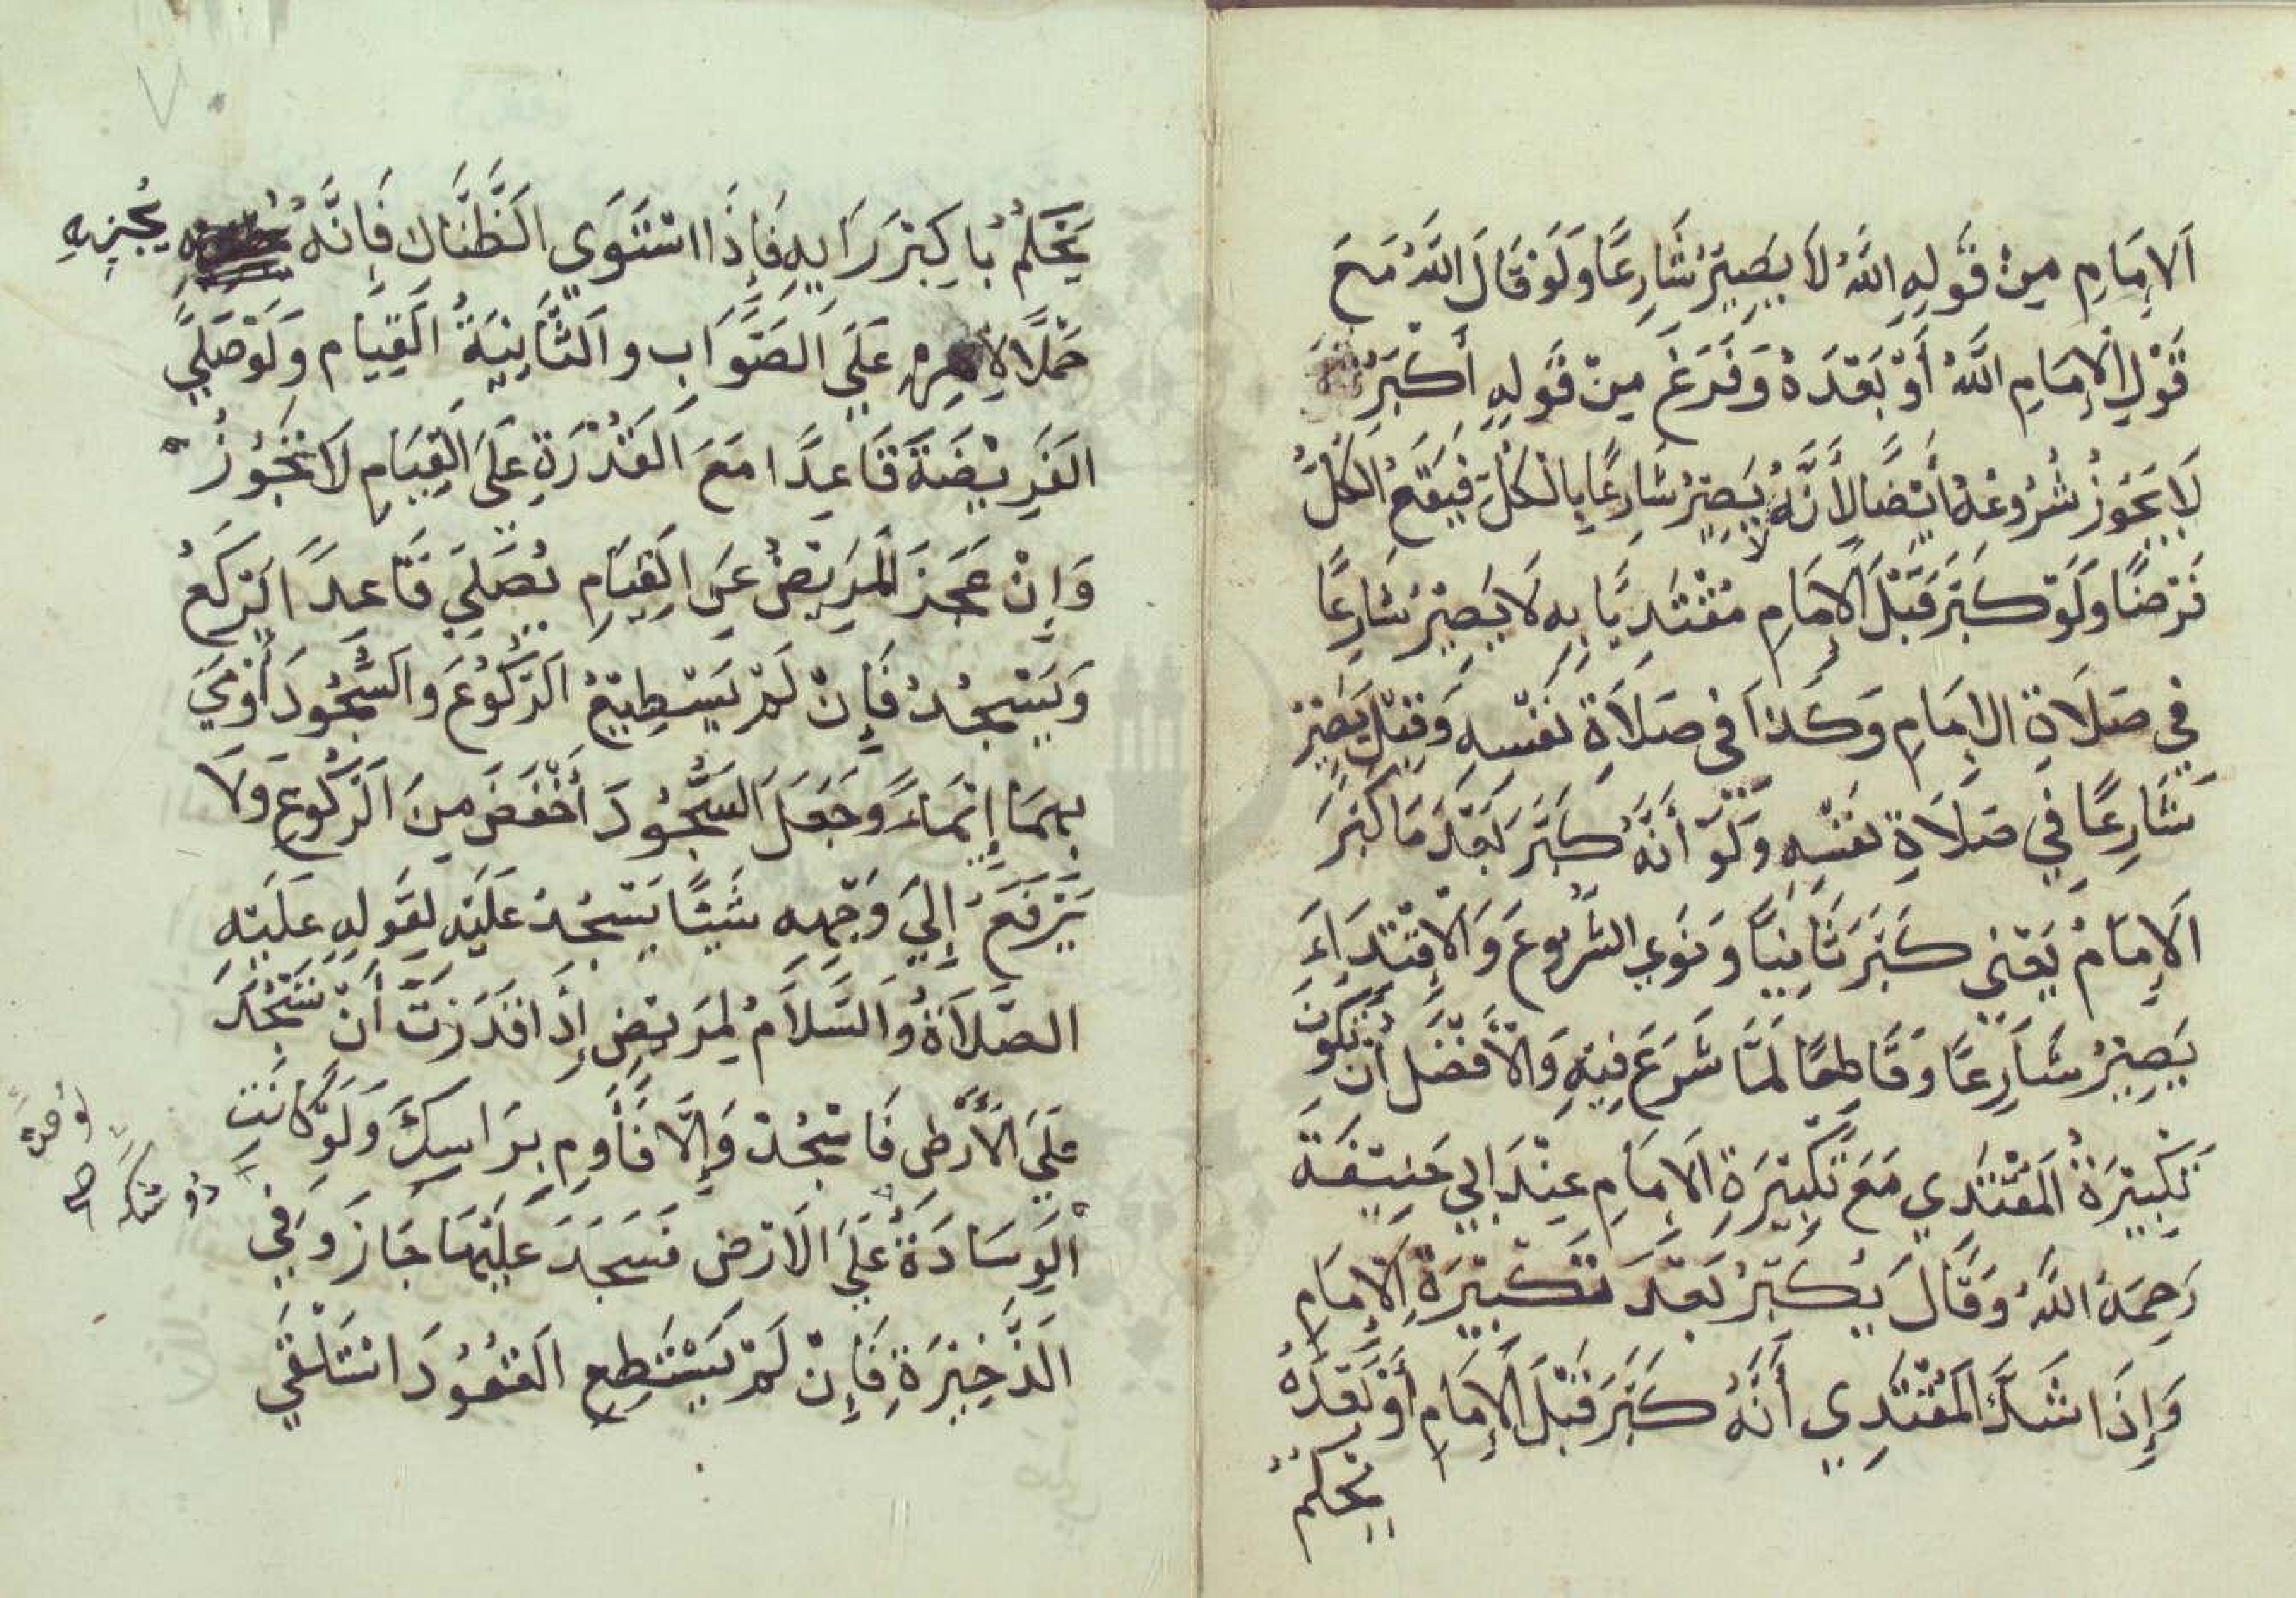 اَلاِمَامِ مِنْ قَوْلِهِ اللّٰهُ لَا يَصِيرُ شَارِعًا وَلَوْ قَالَ اللّٰهُ مَعَ
قَوْلِ الْاِمَامِ اللّٰهُ أَوْ بَعْدَهُ وَفَرَغَ مِنْ قَوْلِهِ أَكْبَرُ
لَا يَجُوزُ شُرُوعُهُ أَيْضًا لِأَنَّهُ يَصِيرُ شَارِعًا بِالْكُلِّ فَيَقَعُ الْكُلُّ
فَرْضًا وَلَوْ كَبَّرَ قَبْلَ الْإِمَامِ مُقْتَدِيًا بِهِ لَا يَصِيرُ شَارِعًا
فِي صَلَاةِ الْإِمَامِ وَكَذَا فِي صَلَاةِ نَفْسِهِ وَقِيْلَ يَصِيْرُ
شَارِعًا فِي صَلَاةِ نَفْسِهِ وَلَوْ أَنَّهُ كَبَّرَ بَعْدَ مَا كَبَّرَ
اَلْإِمَامُ يَعْنِي كَبَّرَ ثَانِيًا وَنَوَي الشُّرُوعَ وَالْاِقْتِدَاءَ
يَصِيْرُ شَارِعًا وَقَاطِعًا لِمَا شَرَعَ فِيْهِ وَالْأَفْضَلُ أَنْ تَكُونَ
تَكْبِيْرَةُ الْمُقْتَدِي مَعَ تَكْبِيْرَةِ الْإِمَامِ عِنْدَ اَبِي حَنِيْفَةَ
رَحِمَهُ اللّٰهُ وَقَالَ يُكَبِّرُ بَعْدَ تَكْبِيْرَةِ الْإِمَامِ
وَإِذَا شَكَّ الْمُقْتَدِي أَنَّهُ كَبَّرَ قَبْلَ الْإِمَامِ أَوْ بَعْدَهُ
يَحْكُمُ
يَحْكُمُ بِاَكْبَرِ رَايِهِ فَإِذَا اسْتَوَي الظَّنَّانِ فَإِنَّهُ يُجْزِيهِ
حَمْلًا لِاَمْرِهِ عَلَي الصَّوَابِ و الثَّانِيَةُ الْقِيَامِ وَلَوْ صَلَّي
الْفَرِيْضَةَ قَاعِدًا مَعَ الْقُدْرَةِ عَلَى الْقِيَامِ لَا يَجُوْزُ
وَاِنْ عَجَزَ الْمَرِيْضُ عَنِ الْقِيَامِ يُصَلِّي قَاعِدًا يَرْكَعُ
وَيَسْجُدُ فَإِنْ لَمْ يَسْتَطِيْعُ الرُّكُوْعَ وَالسُّجُودَ أَوْمَيَ
بِهِمَا إِيْمَاءً وَجَعَلَ السُّجُودَ أَخْفَضَ مِنَ الرُّكُوعِ وَلَا
يَرْفَعُ إِلَيَ وَجْهِهِ شَيْئًا يَسْجُدُ عَلَيْهِ لِقَوْلِهِ عَلَيْهِ
الصَّلَاةُ وَالسَّلَامُ لِمَرِيْضٍ إِذَا قَدَرْتَ أَنْ تَسْجُدَ
عَلَيَ الْاَرْضِ فَاسْجُدْ وَإِلَّا فَأَوْمِ بِرَاسِكَ وَلَوْ كَانَتِ
الْوِسَادَةُ عَلَيَ الْاَرْضِ فَسَجَدَ عَلَيْهَا جَازَ وَفِي
الذَّخِيْرَةِ فَإِنْ لَمْ يَسْتَطِعِ الْقُعُوْدَ اسْتَلْقَي